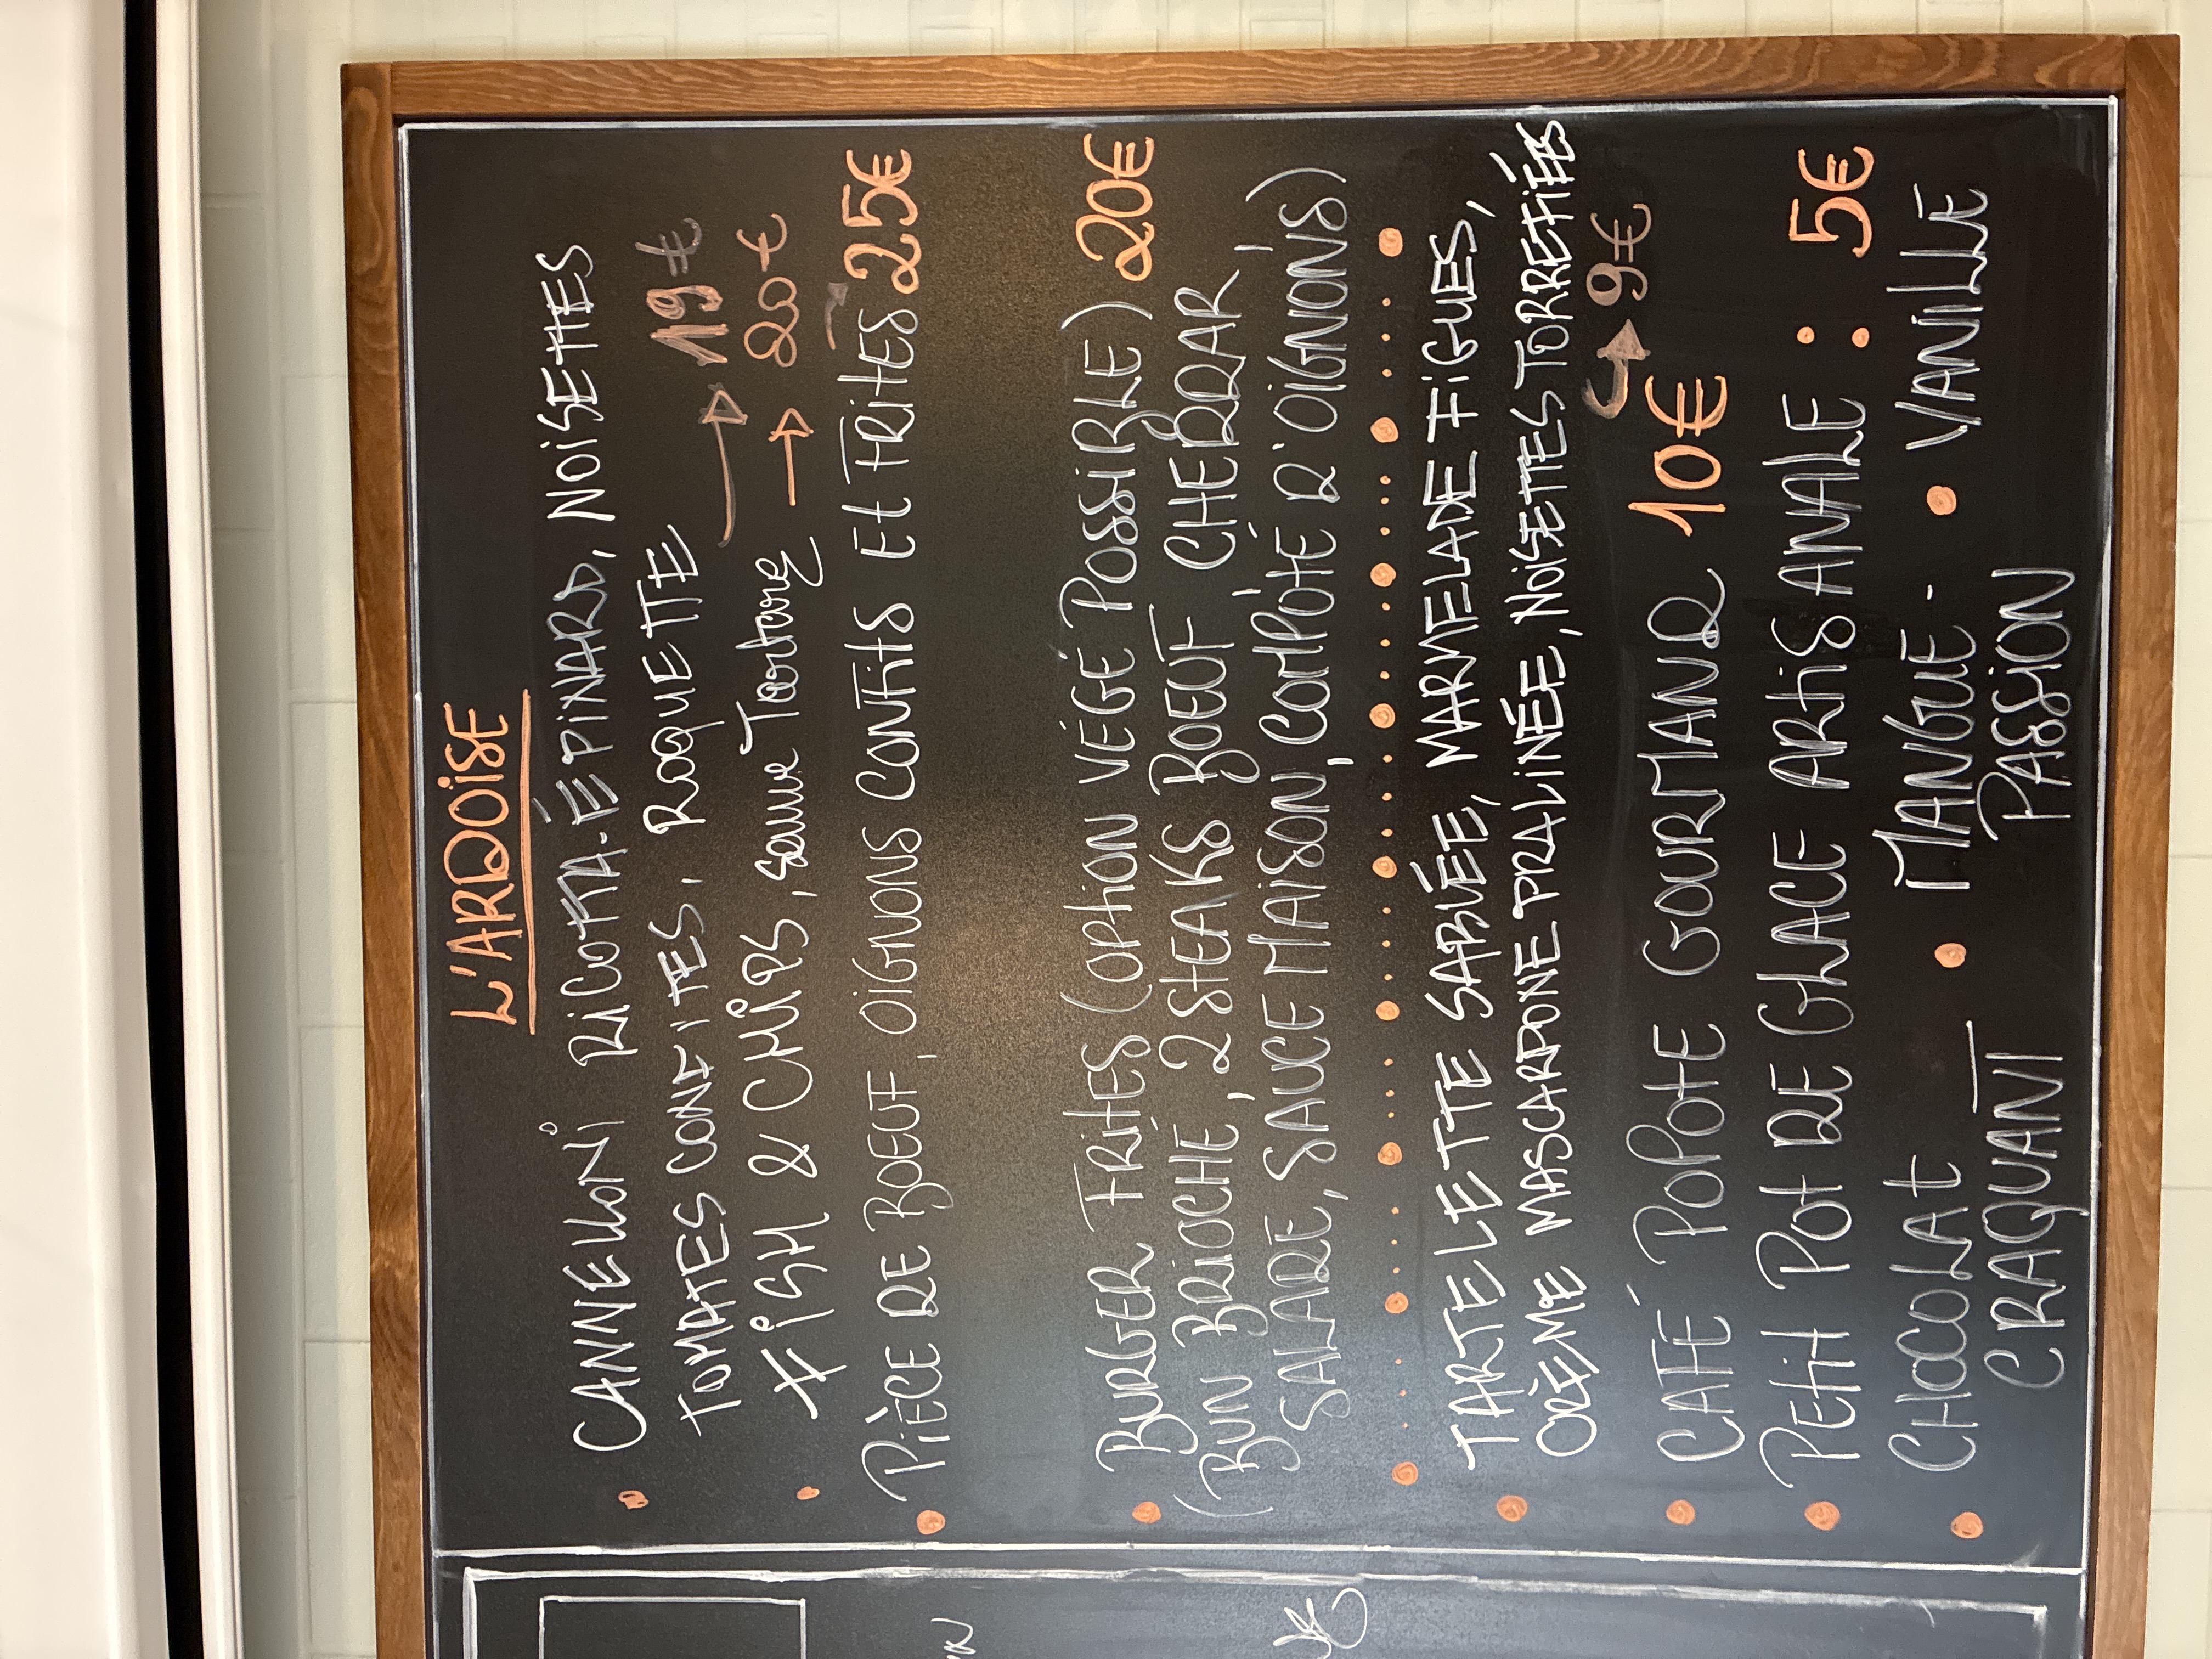 L'ARDOISE
• CANNELLONI RICOTTA-ÉPINARD, NOISETTES
TOMATES CONFITES, ROQUETTE → 19€
• FISH & CHIPS, sauce Tartare → 20€
• PIÈCE DE BOEUF, OIGNONS CONFITS ET FRITES → 25€
• BURGER FRITES (OPTION VÉGÉ POSSIBLE) 20€
(BUN BRIOCHÉ, 2 STEAKS BOEUF, CHEDDAR,
SALADE, SAUCE MAISON, COMPOTÉ D'OIGNONS)
• TARTELETTE SABLÉE, MARMELADE FIGUES,
CRÈME MASCARPONE PRALINÉE, NOISETTES TORREFIÉES
↳ 9€
• CAFÉ POPOTE GOURMAND 10€
• PETIT POT DE GLACE ARTISANALE : 5€
• CHOCOLAT • MANGUE - • VANILLE
CRAQUANT PASSION